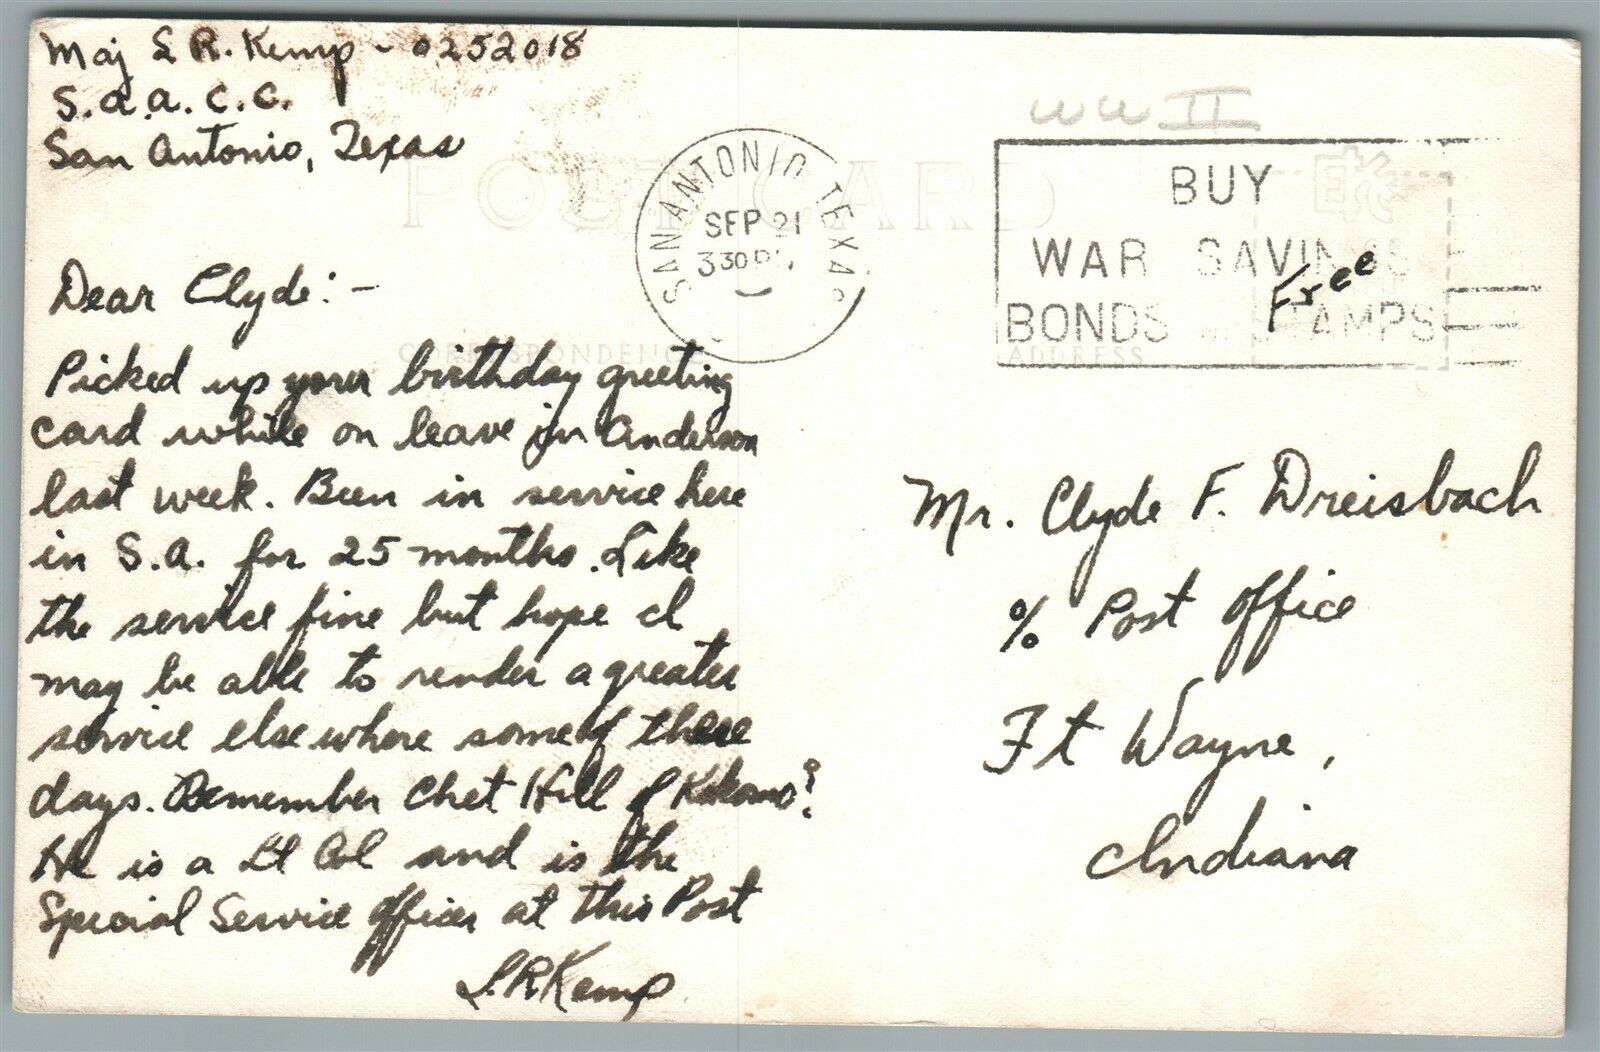 Maj L R. Kemp - 0252018
S.A.A.C.C.
San Antonio, Texas
WW II
POST CARD
SAN ANTONIO TEXAS
SEP 21
3 30 PM
BUY
WAR SAVINGS
BONDS AND STAMPS
Free
CORRESPONDENCE
ADDRESS
Dear Clyde:-
Picked up your birthday greeting
card while on leave in Anderson
last week. Been in service here
in S.A. for 25 months. Like
the service fine but hope I
may be able to render a greater
service elsewhere some of these
days. Remember Chet Hill of Kokomo?
He is a Lt Col and is the
Special Service Officer at this Post
L.R Kemp
Mr. Clyde F. Dreisbach
% Post Office
Ft Wayne,
Indiana